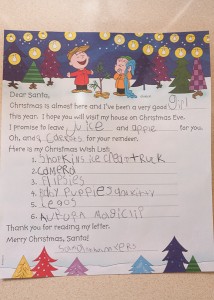 Dear Santa,
Christmas is almost here and I've been a very good girl
this year. I hope you will visit my house on Christmas Eve.
I promise to leave juice and apple for you.
Oh, and carrots for your reindeer.
Here is my Christmas Wish List:
1. Shopkins ice cream truck
2. Camera
3. 
4. puppies and kitty
5. Legos
6. Aurora
Thank you for reading my letter.
Merry Christmas, Santa!